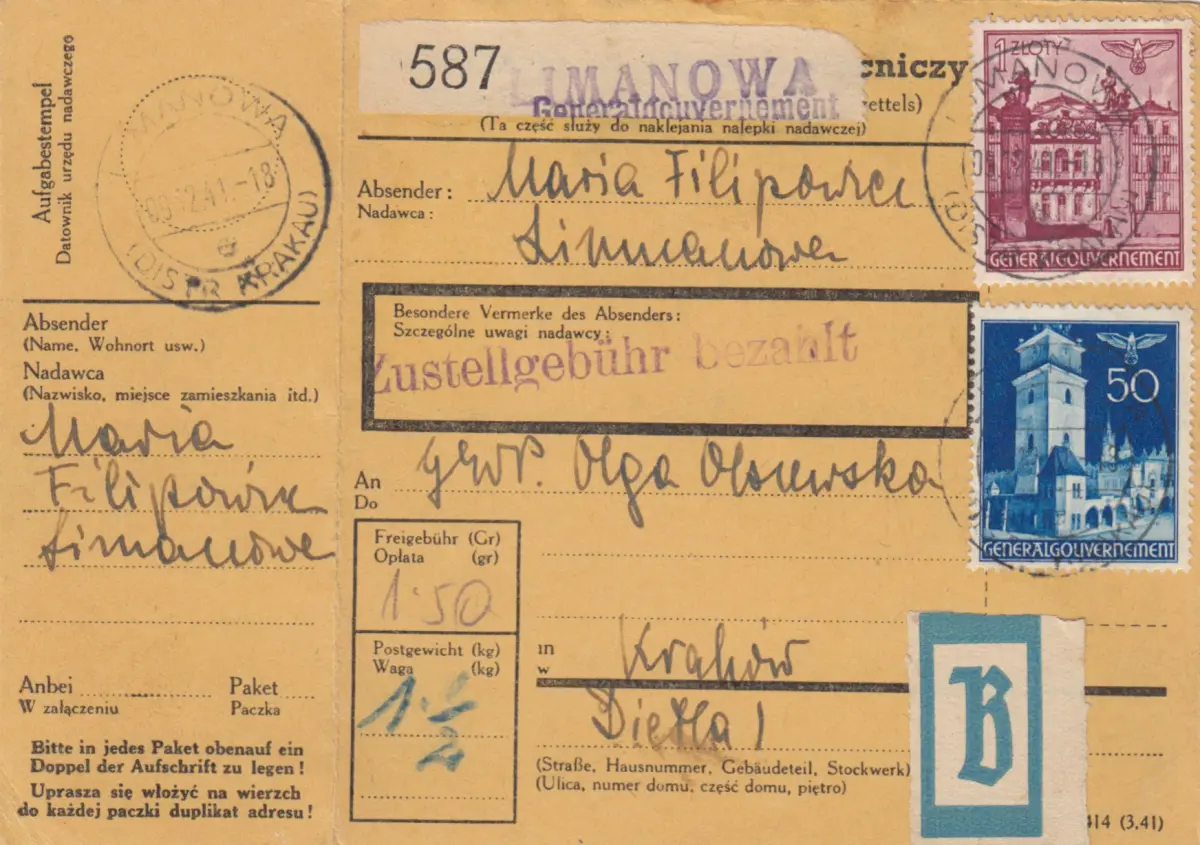 Aufgabestempel
Datownik urzędu nadawczego
LIMANOWA
09.12.41.-18
a
(DISTR KRAKAU)
Absender
(Name, Wohnort usw.)
Nadawca
(Nazwisko, miejsce zamieszkania itd.)
Maria
Filipowicz
Limanowa
Anbei Paket
W załączeniu Paczka
Bitte in jedes Paket obenauf ein
Doppel der Aufschrift zu legen!
Uprasza się włożyć na wierzch
do każdej paczki duplikat adresu!
587 LIMANOWA
Generalgouvernement
czniczy
zettels)
(Ta część służy do naklejania nalepki nadawczej)
Absender: Maria Filipowicz
Nadawca:
Limanowa
Besondere Vermerke des Absenders:
Szczególne uwagi nadawcy:
Zustellgebühr bezahlt
An
Do
Olga Olszewska
Freigebühr (Gr)
Opłata (gr)
1·50
Postgewicht (kg)
Waga (kg)
1 1/2
in
w
Kraków
Dietla 1
(Straße, Hausnummer, Gebäudeteil, Stockwerk)
(Ulica, numer domu, część domu, piętro)
1 ZŁOTY
GENERALGOUVERNEMENT
LIMANOWA
(DISTR KRAKAU)
50
GENERALGOUVERNEMENT
B
414 (3.41)